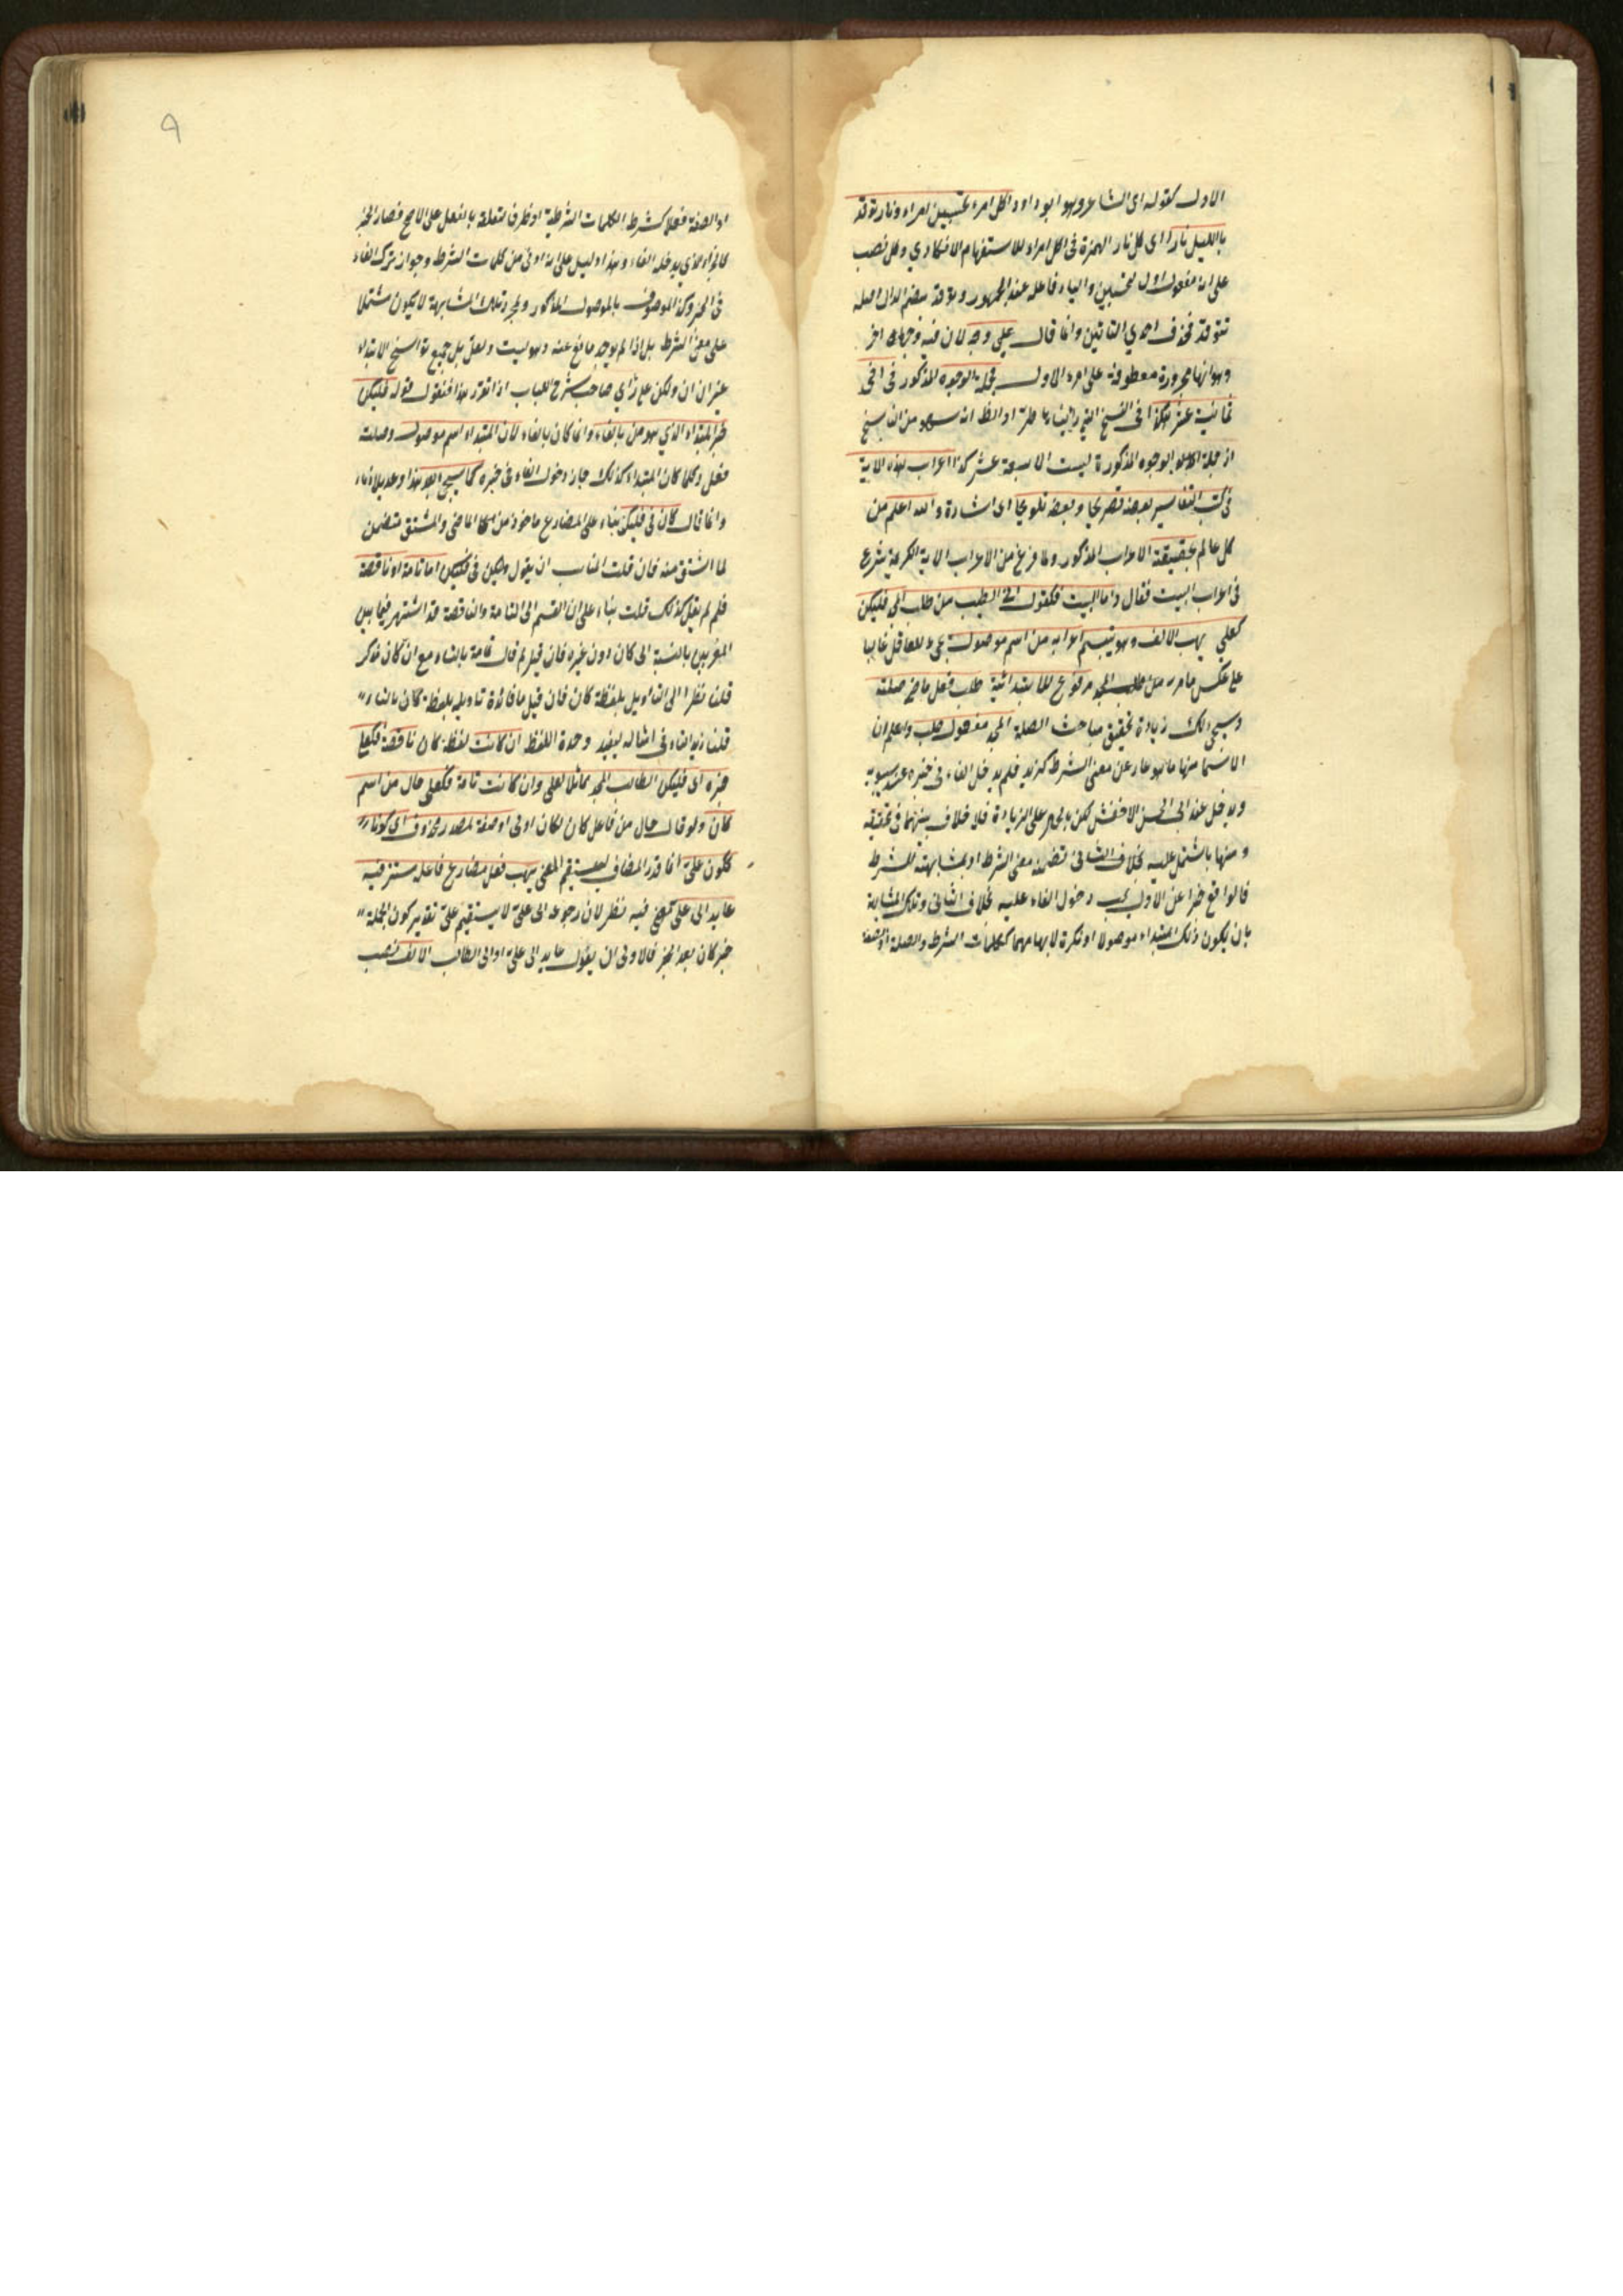 الاول كقوله اى الشاعر وهو ابو داود اكل امرء تحسبين امراء ونار توقد
بالليل نارا اى كل نار الهمزة فى اكل امراء للاستفهام الانكارى وكل نصب
على انه مفعول اول لتحسبين والياء فاعله عند الجمهور وتوقد بضم الدال اصله
تتوقد فحذف احدي التائين وانما قال على وجه لان فيه وجها اخر
وهو انها مجرورة معطوفة على امرء الاول فجملة الوجوه المذكور فى
ثمانية عشر هكذا فى النسخ التى رايناها والظ انه سهو من الناسخ
اذ جملة الوجوه المذكورة ليست الا سبعة عشر كذا اعراب هذه الاية
فى كتب التفاسير بعضه تصريحا وبعضه تلويحا اى اشارة والله اعلم من
كل عالم بحقيقة الاعراب المذكور ولما فرغ من الاعراب الاية الكريمة شرع
فى اعراب البيت فقال واما البيت فكقول من طلب فليكن
كعلى يهب الالف وهو يتبسم اعرابه من اسم موصول يجئ للعاقل غالبا
على عكس ما مر من مرفوع للابتدائية طلب فعل ماض صلته
وسيجئ لك زيادة تحقيق مباحث الصلة المجد مفعول طلب واعلم ان
الاسما منها ما هو عار عن معنى الشرط كزيد فلم يدخل الفاء فى خبره عند سيبويه
ويدخل عند ابى الحسن الاخفش لكن على الزيادة فلا خلاف بينهما فى تحقيقه
ومنها ما اشتمل عليه بخلاف الثانى تضمنه معنى الشرط او بمشابهته للشرط
فالواقع خبرا عن الاول يجب دخول الفاء عليه بخلاف الثانى وتلك المشابهة
بان يكون ذلك المبتداء موصولا او نكرة لابهامهما ككلمات الشرط والصلة او الصفة
او الصفة فعلا كشرط الكلمات الشرطية او ظرف لتعلقه بالفعل على الاصح فصار الخبر
كالجزاء الذي يدخله الفاء وهذا دليل على انه ادنى من كلمات الشرط وجواز ترك الفاء
فى الخبر وكذا الموصوف بالموصول المذكور وبمجرد تلك المشابهة لا يكون مشتملا
على معنى الشرط بل اذا لم يوجد مانع عنه وهو ليت ولعل بل جميع نواسخ الابتداء
غير ان ان ولكن على رأي صاحب شرح اللباب اذا تقرر هذا فنقول قوله فليكن
خبر المبتداء الذي هو من بالفاء وانما كان بالفاء لان المبتداء اسم موصول وصلته
فعل وكلما كان المبتداء كذلك جاز دخول الفاء فى خبره كما سيجئ بعد هذا
وانما قال كان فى فليكن بناء على المضارع ماخوذ من الماضى والمشتق متضمن
لما اشتق منه فان قلت المناسب ان يقول وليكن فى فليكن اما تامة او ناقصة
فلم لم يقل كذلك قلت بناء على ان القسم الى التامة والناقصة قد اشتهر فيما بين
المعربين بالنسبة الى كان دون غيره فان قيل لم قال تامة بالتاء مع ان كان مذكر
قلت نظرا الى التاويل بلفظة كان فان قيل ما فائدة تاويله بلفظة كان بالتاء
قلنا زيد التاء فى امثاله ليفيد وحدة اللفظ ان كانت لفظة كان ناقصة فكعلى
خبره اى فليكن الطالب المجد مماثلا لعلى وان كانت تامة فكعلى حال من اسم
كان ولو قال حال من فاعل كان لكان اولى او صفة لمصدر محذوف اى كونا
ككون على انما قدر المضاف ليستقيم المعنى يهب فعل مضارع فاعله مستتر فيه
عايد الى على فيه نظر لان رجوعه الى على لا يستقيم على تقدير كون الجملة
خبر كان بعد الخبر فالاولى ان يقول عايد الى على او الى الطالب الالف نصب